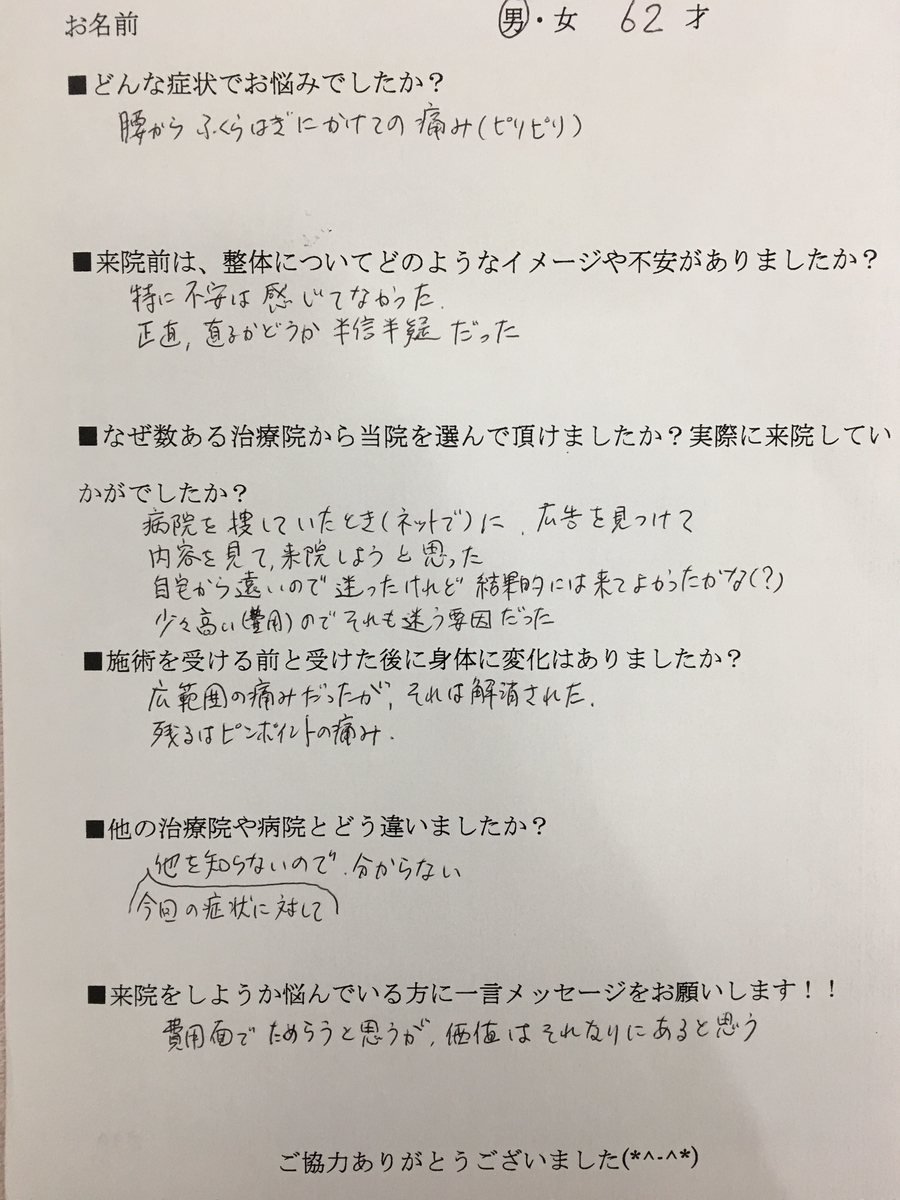 お名前 男・女 62才
■どんな症状でお悩みでしたか？
腰からふくらはぎにかけての痛み(ピリピリ)
■来院前は、整体についてどのようなイメージや不安がありましたか？
特に不安は感じてなかった.
正直,直るかどうか半信半疑だった
■なぜ数ある治療院から当院を選んで頂けましたか？実際に来院してい
かがでしたか？
病院を捜していたとき(ネットで)に,広告を見つけて
内容を見て,来院しようと思った
自宅から遠いので迷ったけれど結果的には来てよかったかな(?)
少々高い(費用)のでそれも迷う要因だった
■施術を受ける前と受けた後に身体に変化はありましたか？
広範囲の痛みだったが,それは解消された.
残るはピンポイントの痛み.
■他の治療院や病院とどう違いましたか？
他を知らないので.分からない
(今回の症状に対して)
■来院をしようか悩んでいる方に一言メッセージをお願いします！！
費用面でためらうと思うが,価値はそれなりにあると思う
ご協力ありがとうございました(*^-^*)